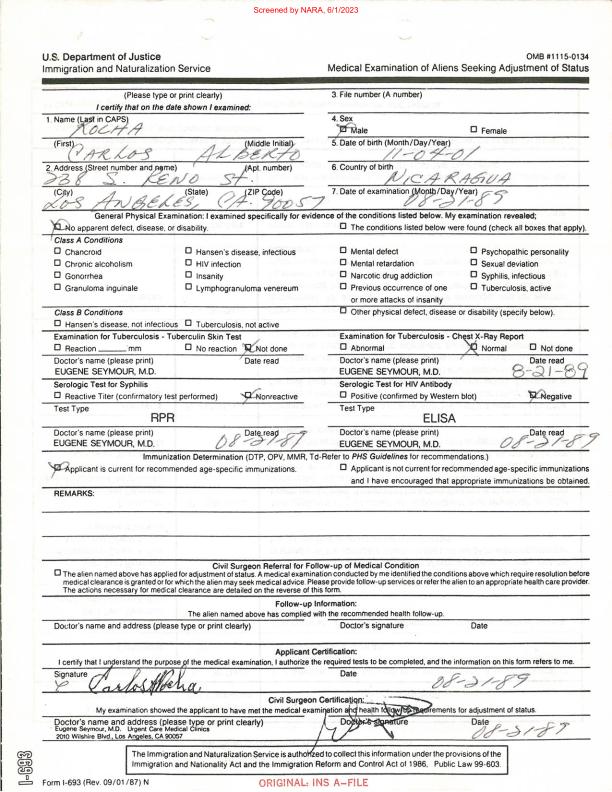 Screened by NARA, 6/1/2023
U.S. Department of Justice
Immigration and Naturalization Service
OMB #1115-0134
Medical Examination of Aliens Seeking Adjustment of Status
(Please type or print clearly)
I certify that on the date shown I examined:
3. File number (A number)
1. Name (Last in CAPS)
ROCHA
4. Sex
Male
Female
(First)
(Middle Initial)
CARLOS ALBERTO
5. Date of birth (Month/Day/Year)
11-04-01
2. Address (Street number and name)
(Apt. number)
238 S. RENO ST.
6. Country of birth
NICARAGUA
(City)
(State)
(ZIP Code)
LOS ANGELES, CA. 90057
7. Date of examination (Month/Day/Year)
08-21-89
General Physical Examination: I examined specifically for evidence of the conditions listed below. My examination revealed;
No apparent defect, disease, or disability.
The conditions listed below were found (check all boxes that apply).
Class A Conditions
Chancroid
Hansen's disease, infectious
Mental defect
Psychopathic personality
Chronic alcoholism
HIV infection
Mental retardation
Sexual deviation
Gonorrhea
Insanity
Narcotic drug addiction
Syphilis, infectious
Granuloma inguinale
Lymphogranuloma venereum
Previous occurrence of one
or more attacks of insanity
Tuberculosis, active
Class B Conditions
Other physical defect, disease or disability (specify below).
Hansen's disease, not infectious
Tuberculosis, not active
Examination for Tuberculosis - Tuberculin Skin Test
Examination for Tuberculosis - Chest X-Ray Report
Reaction ______ mm
No reaction
Not done
Abnormal
Normal
Not done
Doctor's name (please print)
Date read
Doctor's name (please print)
Date read
EUGENE SEYMOUR, M.D.
EUGENE SEYMOUR, M.D.
8-21-89
Serologic Test for Syphilis
Serologic Test for HIV Antibody
Reactive Titer (confirmatory test performed)
Nonreactive
Positive (confirmed by Western blot)
Negative
Test Type
Test Type
RPR
ELISA
Doctor's name (please print)
Date read
Doctor's name (please print)
Date read
EUGENE SEYMOUR, M.D.
08-21-89
EUGENE SEYMOUR, M.D.
08-21-89
Immunization Determination (DTP, OPV, MMR, Td-Refer to PHS Guidelines for recommendations.)
Applicant is current for recommended age-specific immunizations.
Applicant is not current for recommended age-specific immunizations
and I have encouraged that appropriate immunizations be obtained.
REMARKS:
Civil Surgeon Referral for Follow-up of Medical Condition
The alien named above has applied for adjustment of status. A medical examination conducted by me identified the conditions above which require resolution before
medical clearance is granted or for which the alien may seek medical advice. Please provide follow-up services or refer the alien to an appropriate health care provider.
The actions necessary for medical clearance are detailed on the reverse of this form.
Follow-up Information:
The alien named above has complied with the recommended health follow-up.
Doctor's name and address (please type or print clearly)
Doctor's signature
Date
Applicant Certification:
I certify that I understand the purpose of the medical examination, I authorize the required tests to be completed, and the information on this form refers to me.
Signature
Date
Carlos A Rocha
08-21-89
Civil Surgeon Certification:
My examination showed the applicant to have met the medical examination and health follow-up requirements for adjustment of status.
Doctor's name and address (please type or print clearly)
Doctor's signature
Date
Eugene Seymour, M.D. Urgent Care Medical Clinics
2010 Wilshire Blvd., Los Angeles, CA 90057
08-21-89
The Immigration and Naturalization Service is authorized to collect this information under the provisions of the
Immigration and Nationality Act and the Immigration Reform and Control Act of 1986, Public Law 99-603.
Form I-693 (Rev. 09/01/87) N
ORIGINAL: INS A-FILE